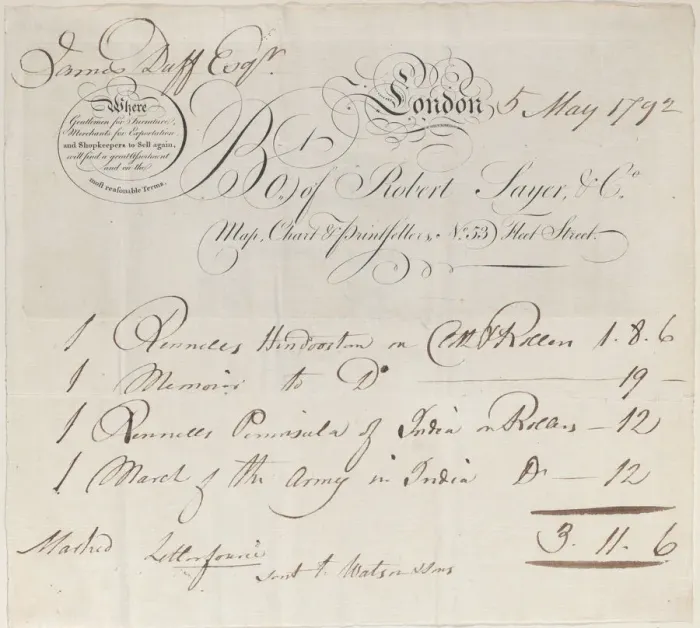 James Duff Esqr.
London, 5 May 1792
Where
Gentlemen for Furniture,
Merchants for Exportation
and Shopkeepers to Sell again,
will find a great Assortment
and on the
most reasonable Terms.
Bot. of Robert Sayer, & Co.
Map, Chart & Printsellers, No. 53 Fleet Street.
1 Rennells Hindoostan on Cloth & Rollers 1. 8. 6
1 Memoir to Do 19 -
1 Rennells Peninsula of India on Rollers - 12
1 March of the Army in India Do - 12
3. 11. 6
Marked Letterfourie
sent to Watson & Sons